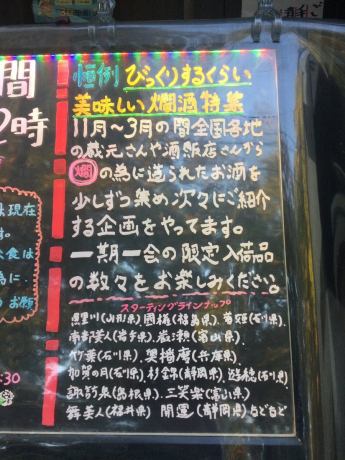 間
2時
恒例 びっくりするくらい
美味しい燗酒特集
11月〜3月の間全国各地
の蔵元さんや酒販店さんから
燗の為に造られたお酒を
少しずつ集め次々にご紹介
する企画をやってます。
一期一会の限定入荷品
の数々をお楽しみください。
スターティングラインナップ
黒川(山形県)、國権(福島県)、菊姫(石川県)、
南部美人(岩手県)、(富山県)、
竹葉(石川県)、奥播磨(兵庫県)、
加賀の月(石川県)、杉錦(静岡県)、遊穂(石川県)、
諏訪泉(鳥根県)、三笑楽(富山県)
舞美人(福井県) 開運(静岡県)などなど
現在
す。
食は
為に、
のお願
:30